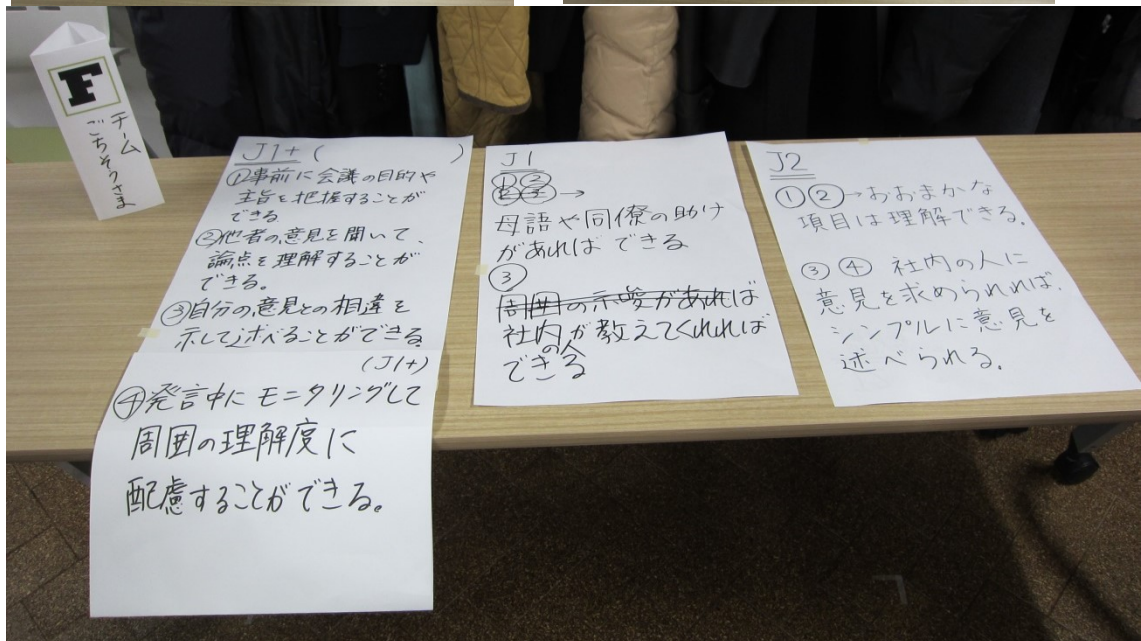 F
チーム
ごちそうさま
J1+ ( )
①事前に会議の目的や
主旨を把握することが
できる
②他者の意見を聞いて、
論点を理解することが
できる。
③自分の意見との相違を
示して述べることができる
(J1+)
④発言中にモニタリングして
周囲の理解度に
配慮することができる。
J1
①②
→
母語や同僚の助け
があれば できる
③
周囲の示唆があれば
社内の人が教えてくれれば
できる
J2
①②→おおまかな
項目は理解できる。
③ ④ 社内の人に
意見を求められれば、
シンプルに意見を
述べられる。